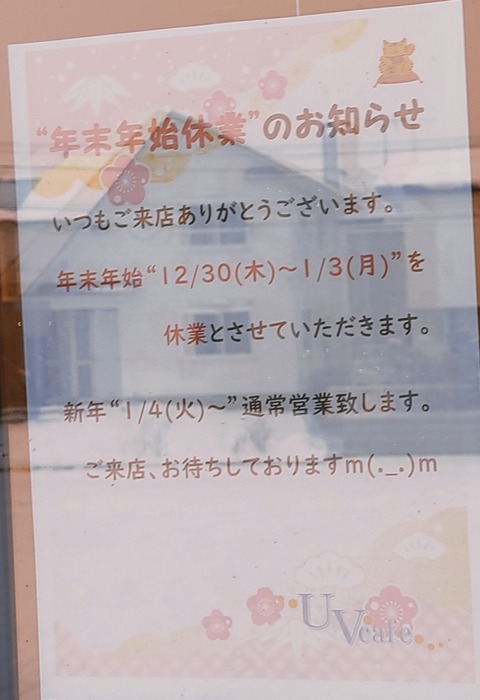 “年末年始休業”のお知らせ
いつもご来店ありがとうございます。
年末年始“12/30(木)～1/3(月)”を
休業とさせていただきます。
新年“1/4(火)～”通常営業致します。
ご来店、お待ちしておりますm(._.)m
UVcafe